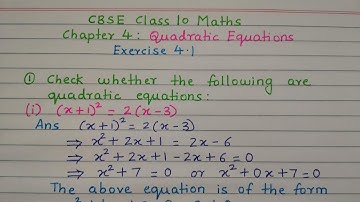 CBSE Class 10 Maths
Chapter 4: Quadratic Equations
Exercise 4.1
① Check whether the following are
quadratic equations:
(i) (x+1)² = 2(x-3)
Ans (x+1)² = 2(x-3)
⇒ x² + 2x + 1 = 2x - 6
⇒ x² + 2x + 1 - 2x + 6 = 0
⇒ x² + 7 = 0 or x² + 0x + 7 = 0
The above equation is of the form